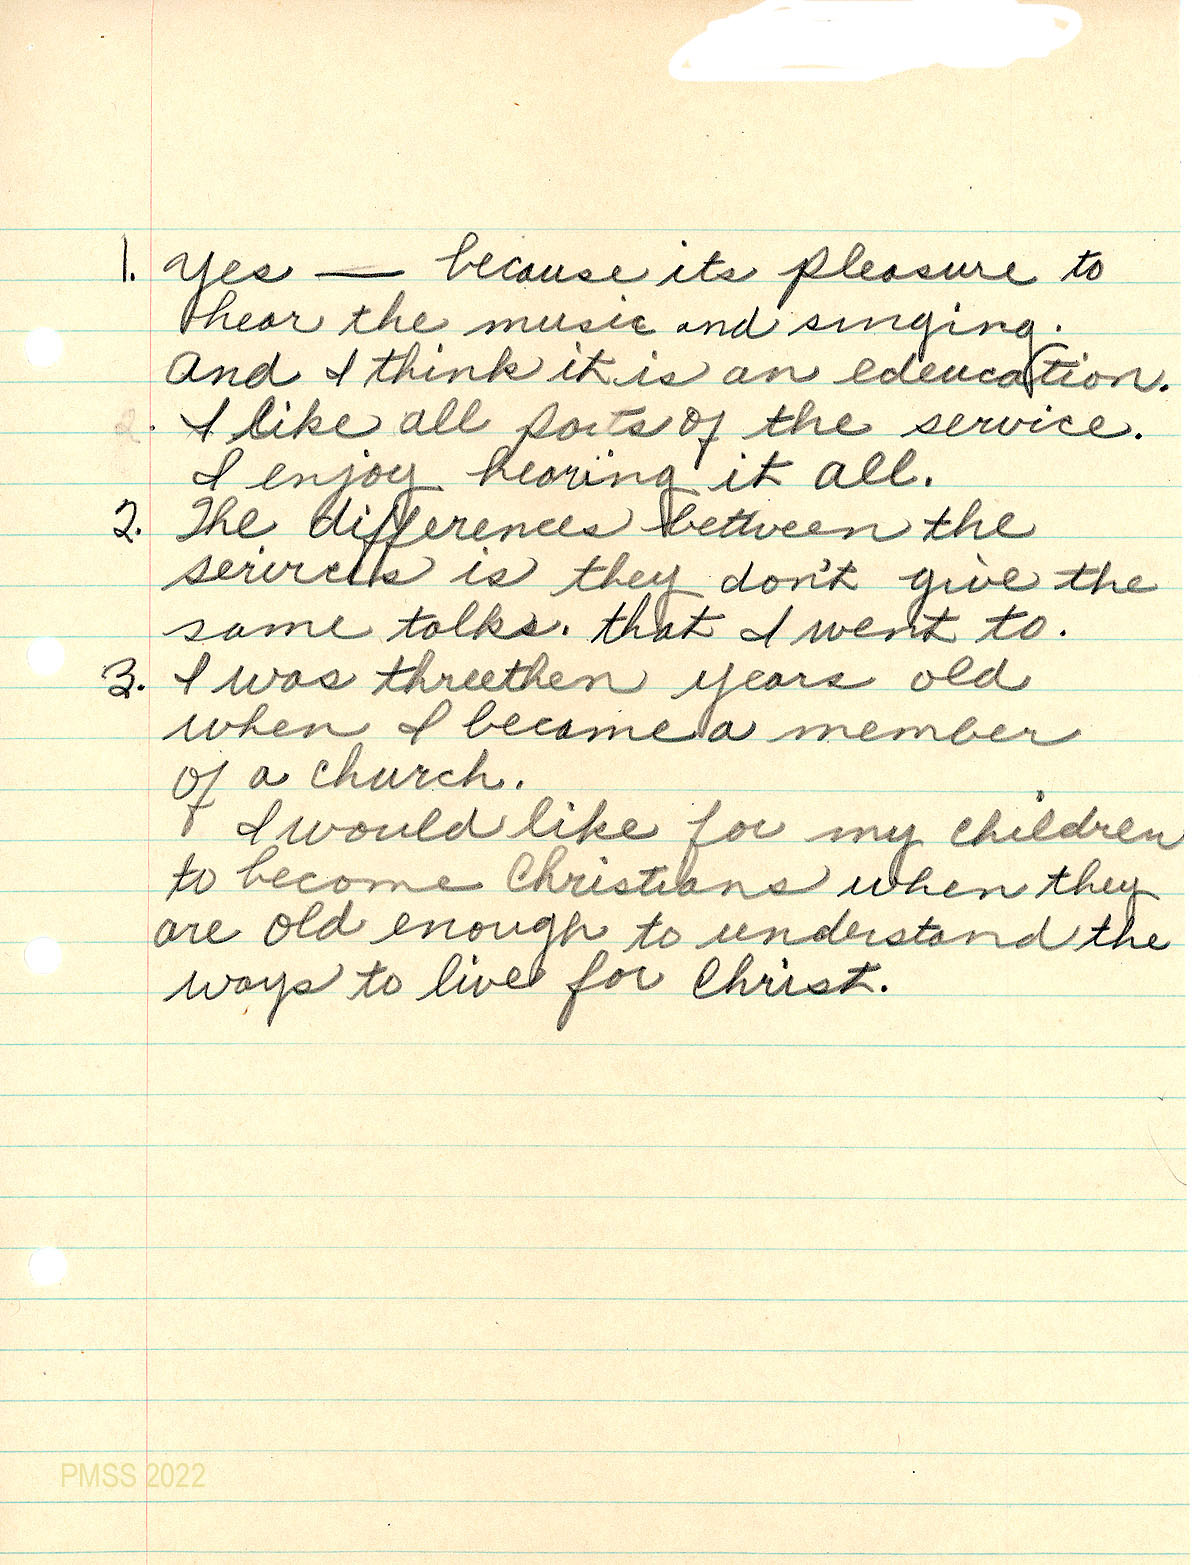 1. Yes — because its pleasure to
hear the music and singing.
And I think it is an edeucation.
2. I like all parts of the service.
I enjoy hearing it all.
2. The differences between the
is they don't give the
same talks. that I went to.
3. I was threethen years old
when I became a member
of a church.
I would like for my children
to become Christians when they
are old enough to understand the
ways to live for Christ.
PMSS 2022